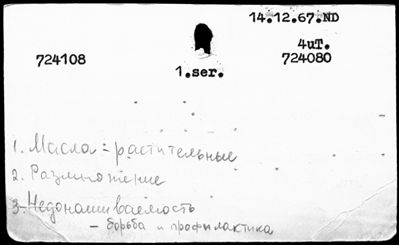 14.12.67.ND
4uT.
724108 724080
1.ser.
1. Масла = растительные
2. Размножение
3. Недонашиваемость
– борьба и профилактика